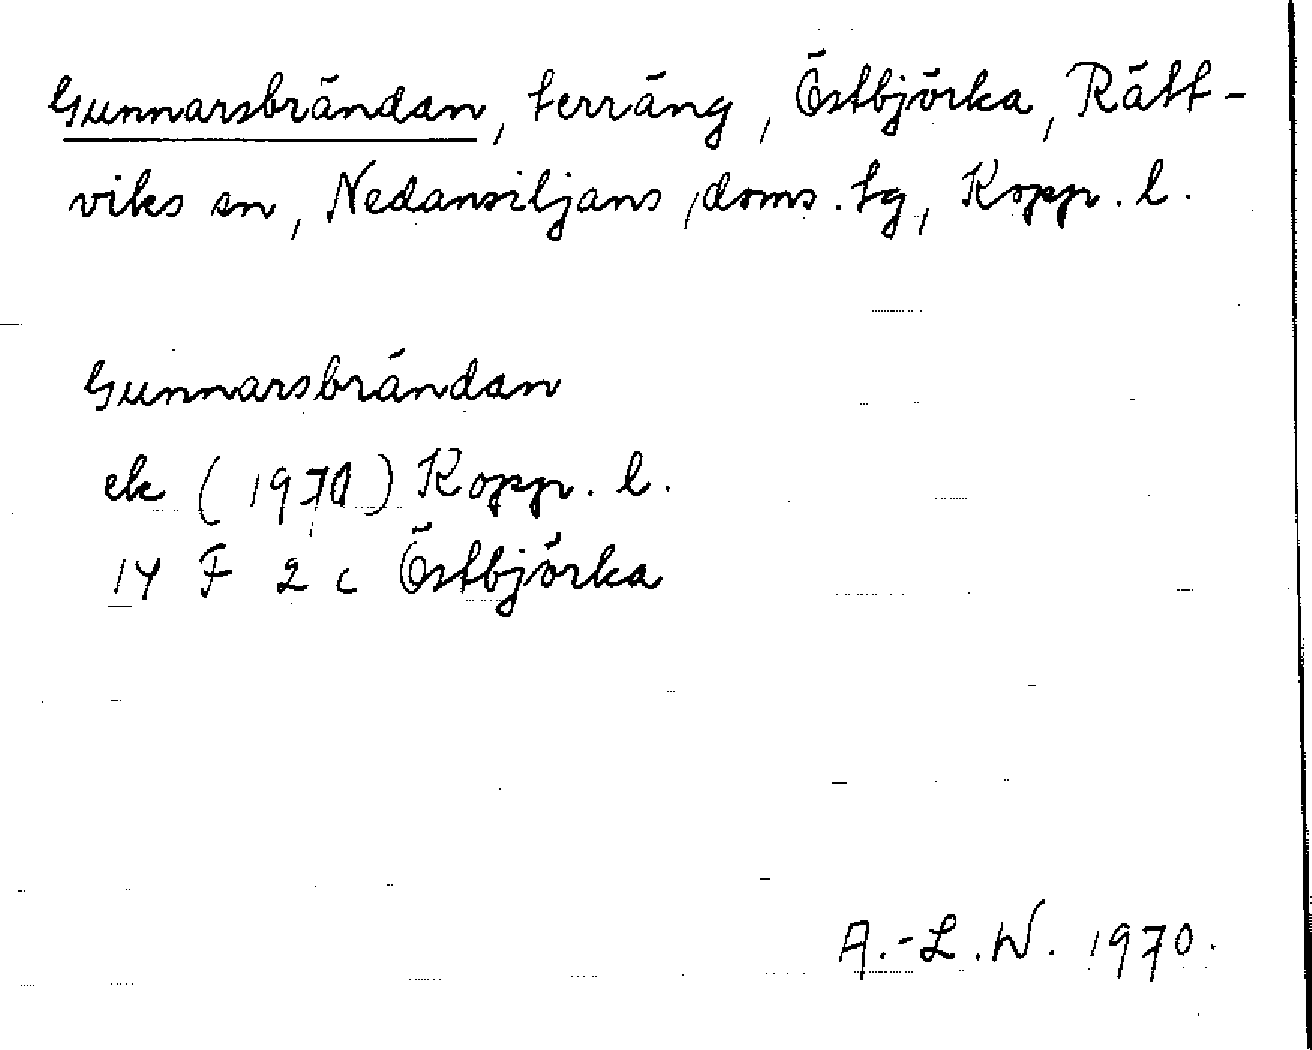 Gunnarsbrändan, terräng, Östbjörka, Rätt-
viks sn, Nedansiljans doms. tg, Kopp. l.
Gunnarsbrändan
ek (1970) Kopp. l.
14 F 2 c Östbjörka
A.-L. W. 1970.